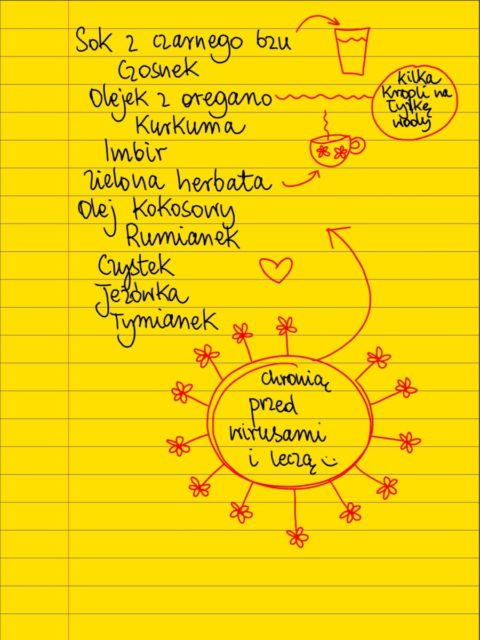 Sok z czarnego bzu
Czosnek
Olejek z oregano
kilka
kropli na
łyżkę
wody
Kurkuma
Imbir
Zielona herbata
Olej kokosowy
Rumianek
Czystek
Jeżówka
Tymianek
chronią
przed
wirusami
i leczą :)